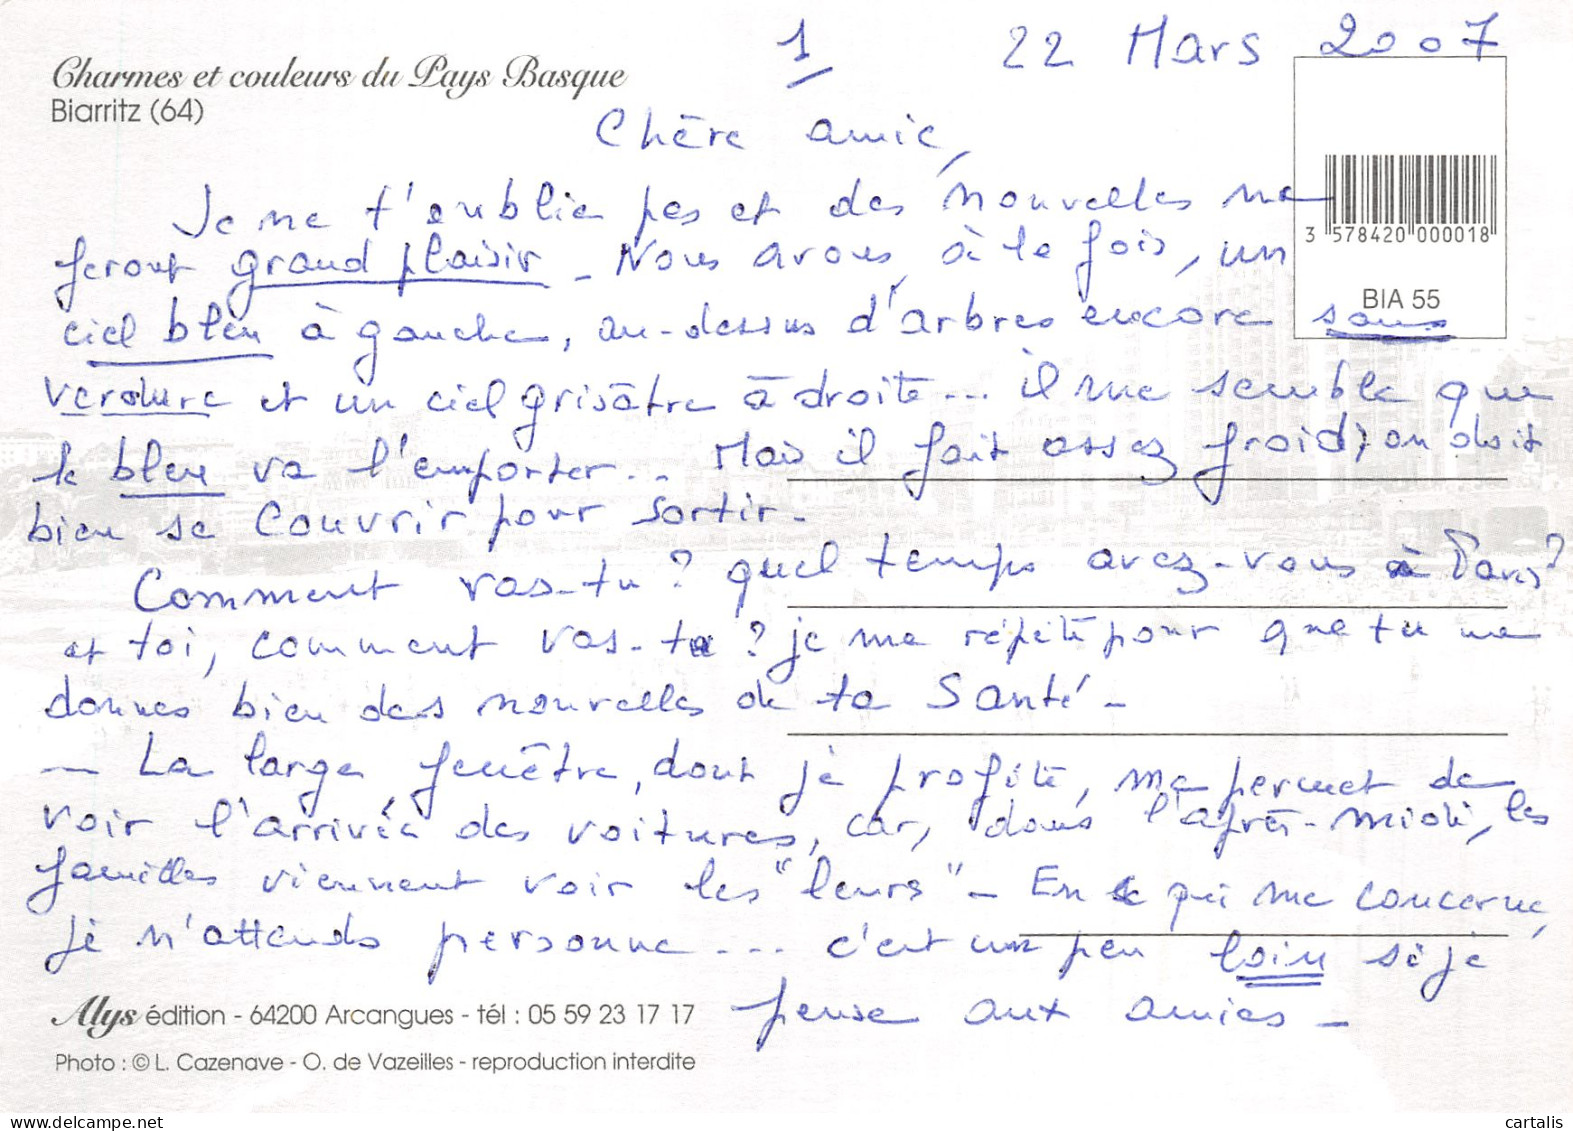 1
22 Mars 2007
Charmes et couleurs du Pays Basque
Biarritz (64)
Chère amie,
Je ne t'oublie pas et des nouvelles me
feront grand plaisir - Nous avons, à la fois, un
ciel bleu à gauche, au-dessus d'arbres encore sans
verdure et un ciel grisâtre à droite... il me semble que
le bleu va l'emporter... Mais il fait assez froid, on doit
bien se couvrir pour sortir -
Comment vas-tu ? quel temps avez-vous à Paris ?
et toi, comment vas-tu ? je me répète pour que tu me
donnes bien des nouvelles de ta santé -
- La large fenêtre, dont je profite, me permet de
voir l'arrivée des voitures, car, dans l'après-midi, les
familles viennent voir les "leurs" - En ce qui me concerne,
je n'attends personne... c'est un peu loin si je
pense aux amies -
3 578420 000018
BIA 55
Alys édition - 64200 Arcangues - tél : 05 59 23 17 17
Photo : © L. Cazenave - O. de Vazeilles - reproduction interdite
www.delcampe.net
cartalis